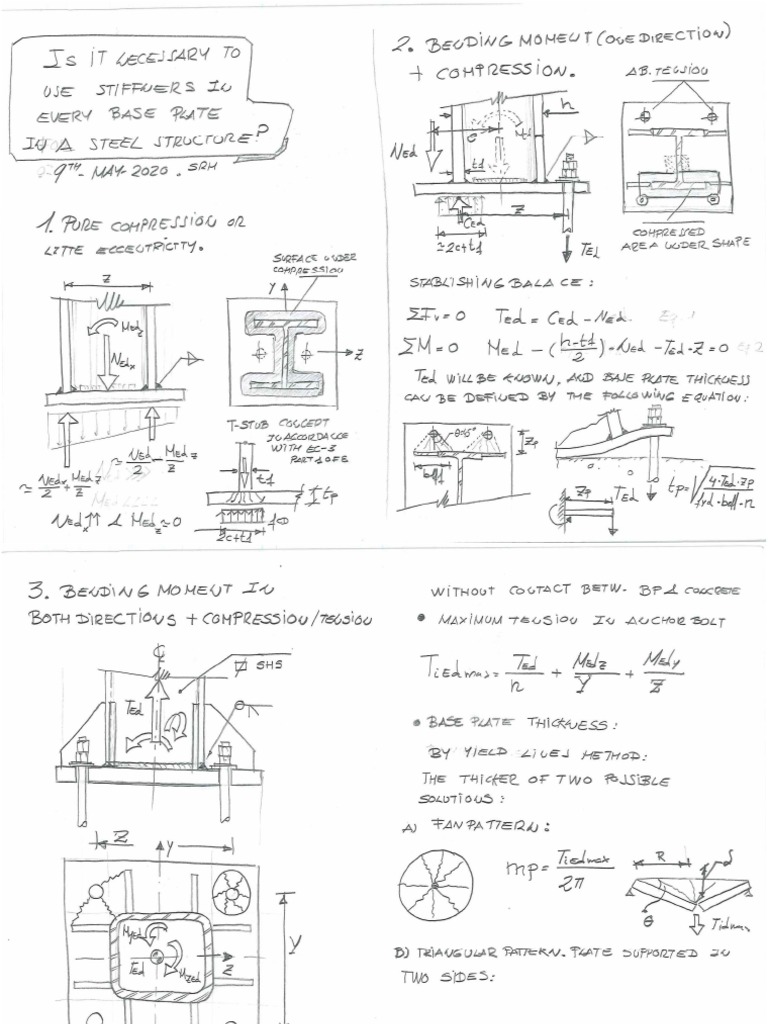 IS IT NECESSARY TO
USE STIFFNERS IN
EVERY BASE PLATE
IN A STEEL STRUCTURE?
9TH-MAY-2020. SRM
1. PURE COMPRESSION OR
LITTE ECCENTRICITY.
SURFACE UNDER
COMPRESSION
Z
MEdz
NEdx
y
Z
T-STUB CONCEPT
IN ACCORDANCE
WITH EC-3
PART 1 OF 8
t1
tp
2c+t1
≈ NEd/2 - MEdz/Z
≈ NEdx/2 + MEdz/Z
NEdx↑↑ & MEdz≈0
2. BENDING MOMENT (ONE DIRECTION)
+ COMPRESSION.
AB. TENSION
NEd
h
t1
Z
CEd
≈2c+t1
TEd
COMPRESSED
AREA UNDER SHAPE
STABLISHING BALANCE:
ΣFv=0 TEd = CEd - NEd. Eq. 1
ΣM=0 MEd - (h-t1/2)·NEd - TEd·Z = 0 Eq 2
TEd WILL BE KNOWN, AND BASE PLATE THICKNESS
CAN BE DEFINED BY THE FOLLOWING EQUATION:
θ=45°
Zp
beff
Zp
TEd
tp=√(4·TEd·Zp/fyd·beff·n)
3. BENDING MOMENT IN
BOTH DIRECTIONS + COMPRESSION/TENSION
SHS
TEd
Z
y
MyEd
TEd
MzEd
Z
Y
WITHOUT CONTACT BETW. BP & CONCRETE
• MAXIMUM TENSION IN ANCHOR BOLT
TiEdmax = TEd/n + MEdz/Y + MEdy/Z
• BASE PLATE THICKNESS:
BY YIELD LINES METHOD:
THE THICKER OF TWO POSSIBLE
SOLUTIONS:
A) FAN PATTERN:
mp= TiEdmax/2π
R
δ
θ
TiEdmax
B) TRIANGULAR PATTERN. PLATE SUPPORTED IN
TWO SIDES: